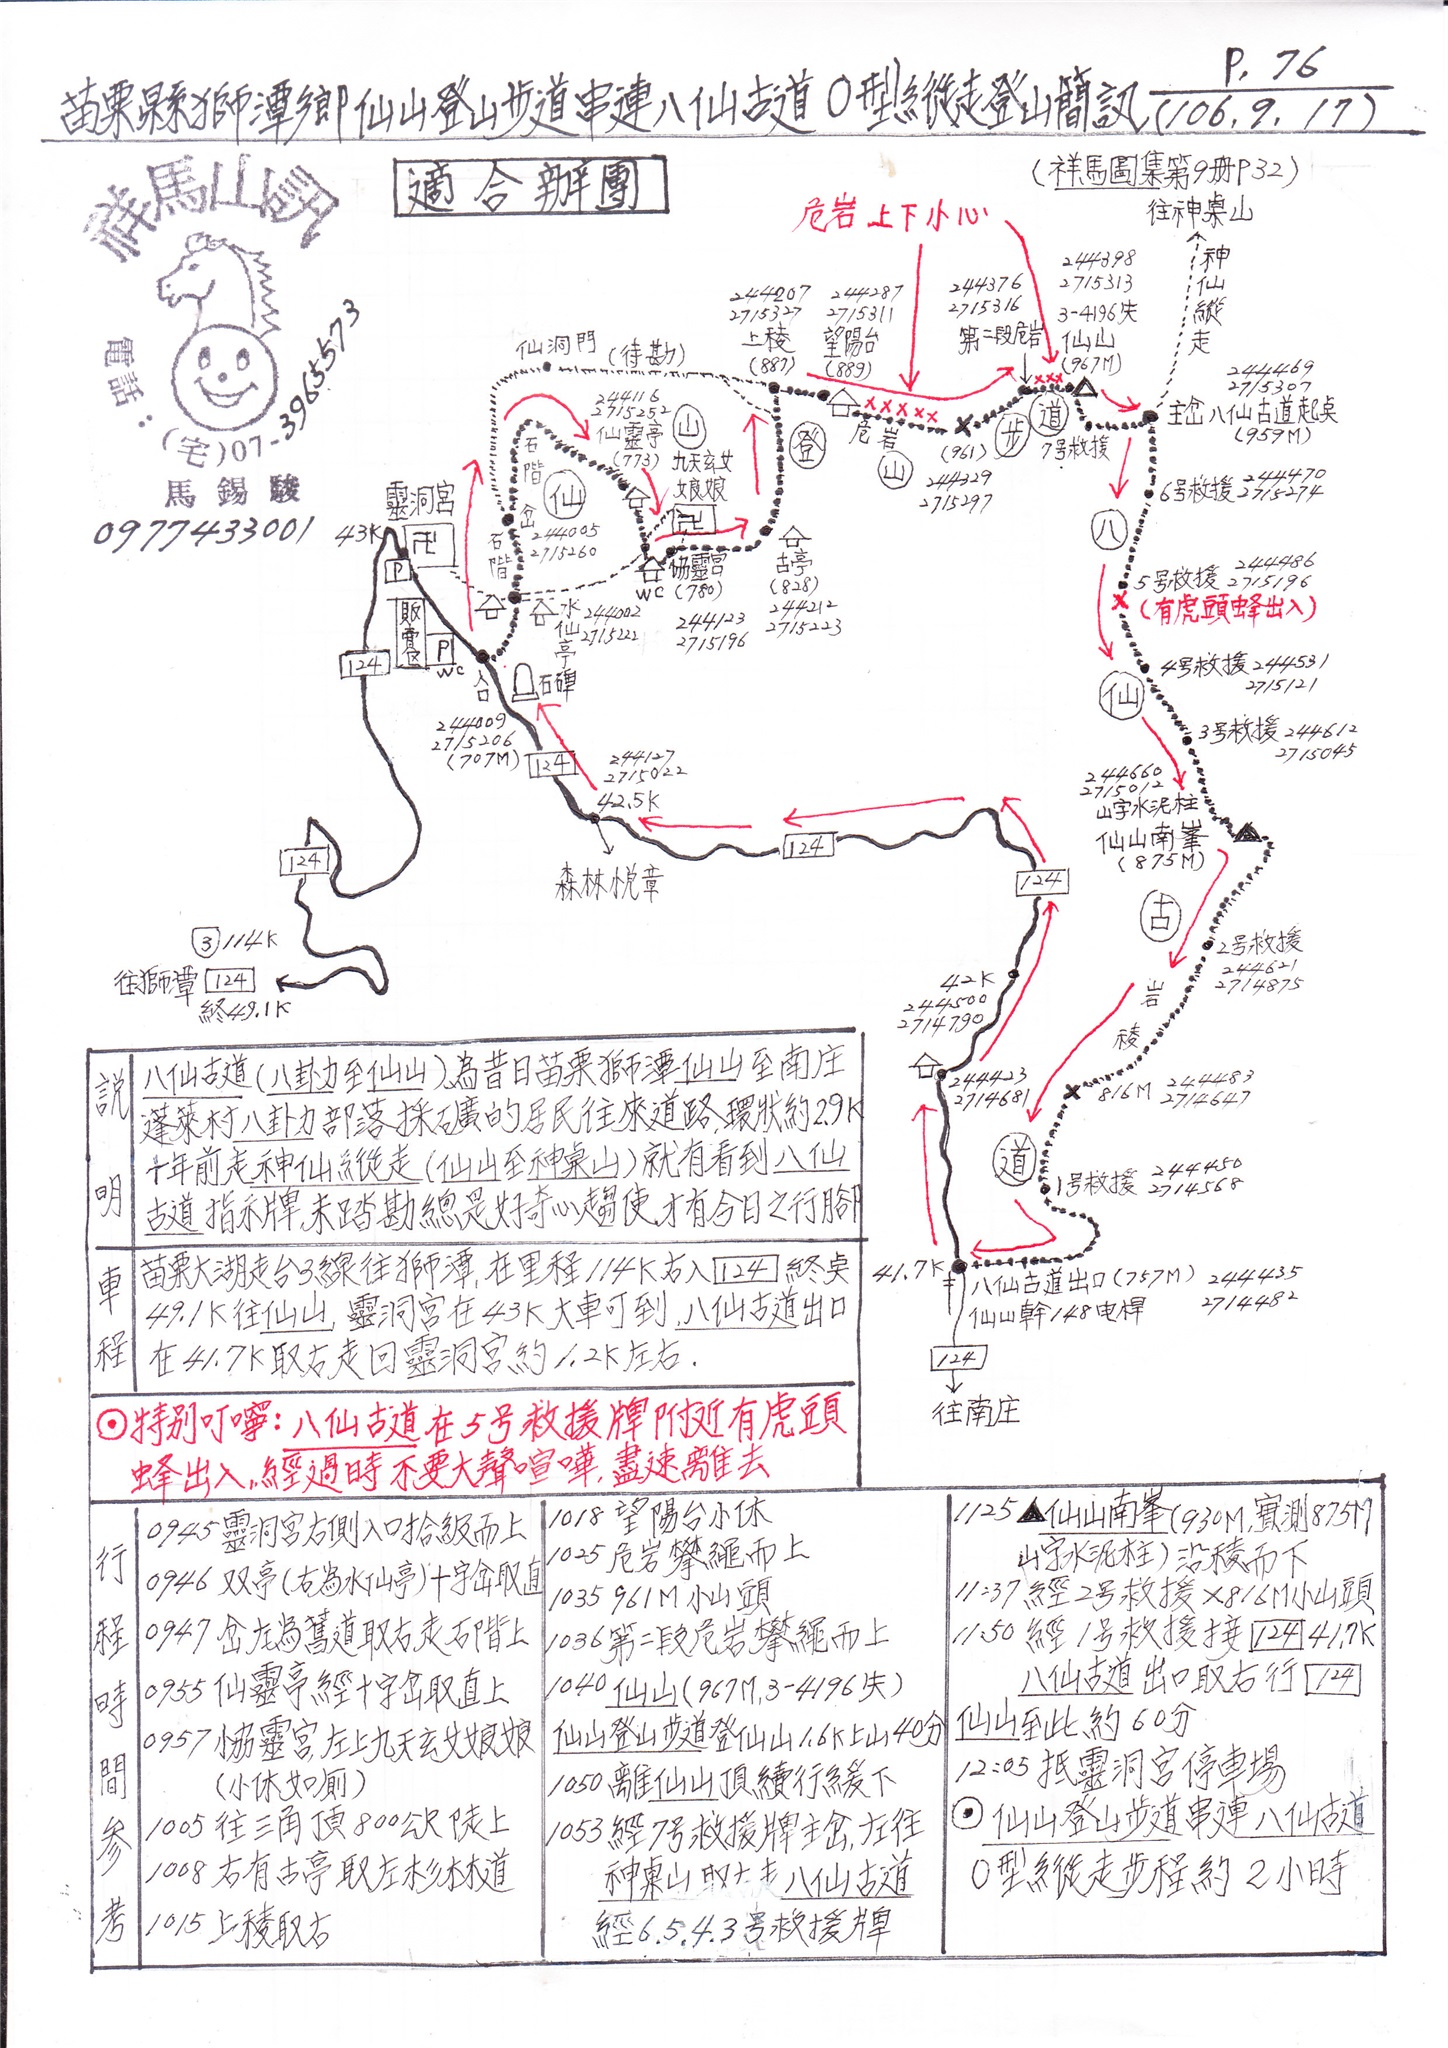 P. 76
苗栗縣獅潭鄉仙山登山步道串連八仙古道O型縱走登山簡訊 (106.9.17)
適合辦團
(祥馬圖集第9册P32)
祥馬山訊
電話:
(宅)07-3965573
馬錫駿
0977433001
往神桌山
神仙縱走
危岩上下小心
244398
2715313
3-4196失
仙山
(967M)
244376
2715316
第二段危岩
244287
2715311
望陽台
(889)
244207
2715327
上稜
(887)
仙洞門 (待勘)
244469
2715307
主岔八仙古道起点
(959M)
7号救援
危岩
(961)
244329
2715297
仙
山
登
山
步
道
244116
2715252
仙靈亭
(773)
九天玄女
娘娘
石階
岔
石階
244005
2715260
靈洞宮
43K
卍
P
販賣區
P
WC
卍
WC
協靈宮
(780)
244123
2715196
古亭
(828)
244212
2715223
水仙亭
244002
2715222
入口
石碑
244009
2715206
(707M)
124
124
244127
2715022
42.5K
森林悅章
124
124
124
3 114K
往獅潭 124
終49.1K
6号救援 244470
2715274
八
5号救援 244486
2715196
(有虎頭蜂出入)
4号救援 244531
2715121
仙
3号救援 244612
2715045
244660
2715012
山字水泥柱
仙山南峯
(875M)
古
2号救援
244621
2714875
岩稜
816M 244483
2714647
道
1号救援 244450
2714568
42K
244500
2714790
244423
2714681
41.7K
八仙古道出口(757M) 244435
2714482
仙山幹148电桿
124
往南庄
説明
八仙古道(八卦力至仙山)為昔日苗栗獅潭仙山至南庄
蓬萊村八卦力部落採礦的居民往來道路,環狀約2.9K
十年前走神仙縱走(仙山至神桌山)就有看到八仙
古道指示牌,未踏勘總是好奇心趨使,才有今日之行脚
車程
苗栗大湖走台3線往獅潭,在里程114K右入124終点
49.1K往仙山,靈洞宮在43K大車可到,八仙古道出口
在41.7K取右走回靈洞宮約1.2K左右.
⊙特别叮嚀:八仙古道在5号救援牌附近有虎頭
蜂出入,經過時不要大聲喧嘩,盡速離去
行程時間參考
0945靈洞宮右側入口拾級而上
0946 双亭(右為水仙亭)十字岔取直
0947 岔左為舊道取右走石階上
0955 仙靈亭經十字岔取直上
0957 小協靈宮,左上九天玄女娘娘
(小休如廁)
1005 往三角頂800公尺陡上
1008 右有古亭取左杉林道
1015 上稜取右
1018 望陽台小休
1025 危岩攀繩而上
1035 961M小山頭
1036 第二段危岩攀繩而上
1040 仙山(967M,3-4196失)
仙山登山步道登仙山1.6K上山40分
1050 離仙山頂續行緩下
1053 經7号救援牌主岔,左往
神桌山取右走八仙古道
經6.5.4.3号救援牌
1125 ▲仙山南峯(930M,實測875M
山字水泥柱)沿稜而下
11:37 經2号救援×816M小山頭
11:50 經1号救援接124 41.7K
八仙古道出口取右行124
仙山至此約60分
12:05 抵靈洞宮停車場
⊙仙山登山步道串連八仙古道
O型縱走步程約2小時